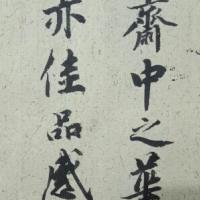 齋中之華
亦佳品感